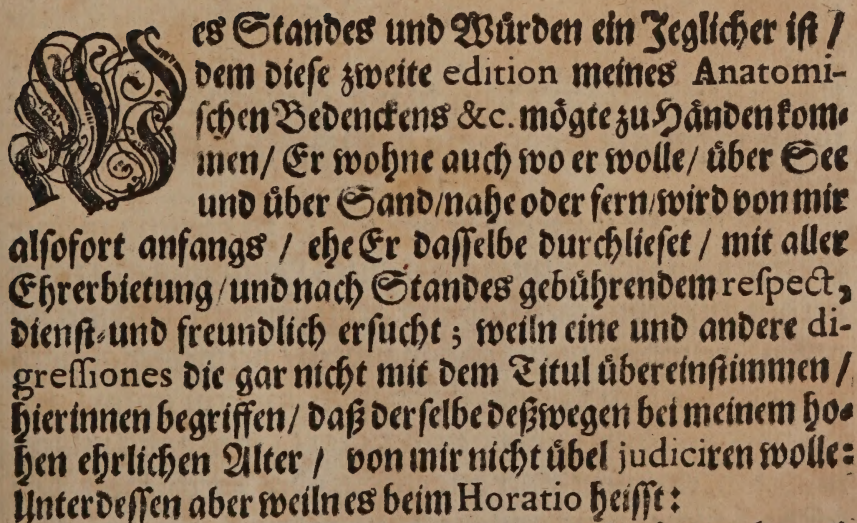 Wes Standes und Würden ein Jeglicher ist /
dem diese zweite edition meines Anatomi-
schen Bedenckens &c. mögte zu Händen kom-
men/ Er wohne auch wo er wolle/ über See
und über Sand/nahe oder fern/wird von mir
alsofort anfangs / ehe Er dasselbe durchlieset / mit aller
Ehrerbietung/und nach Standes gebührendem respect,
dienst-und freundlich ersucht ; weiln eine und andere di-
gressiones die gar nicht mit dem Titul übereinstimmen /
hierinnen begriffen/ daß derselbe deßwegen bei meinem ho-
hen ehrlichen Alter / von mir nicht übel judiciren wolle:
Unterdessen aber weiln es beim Horatio heisst: